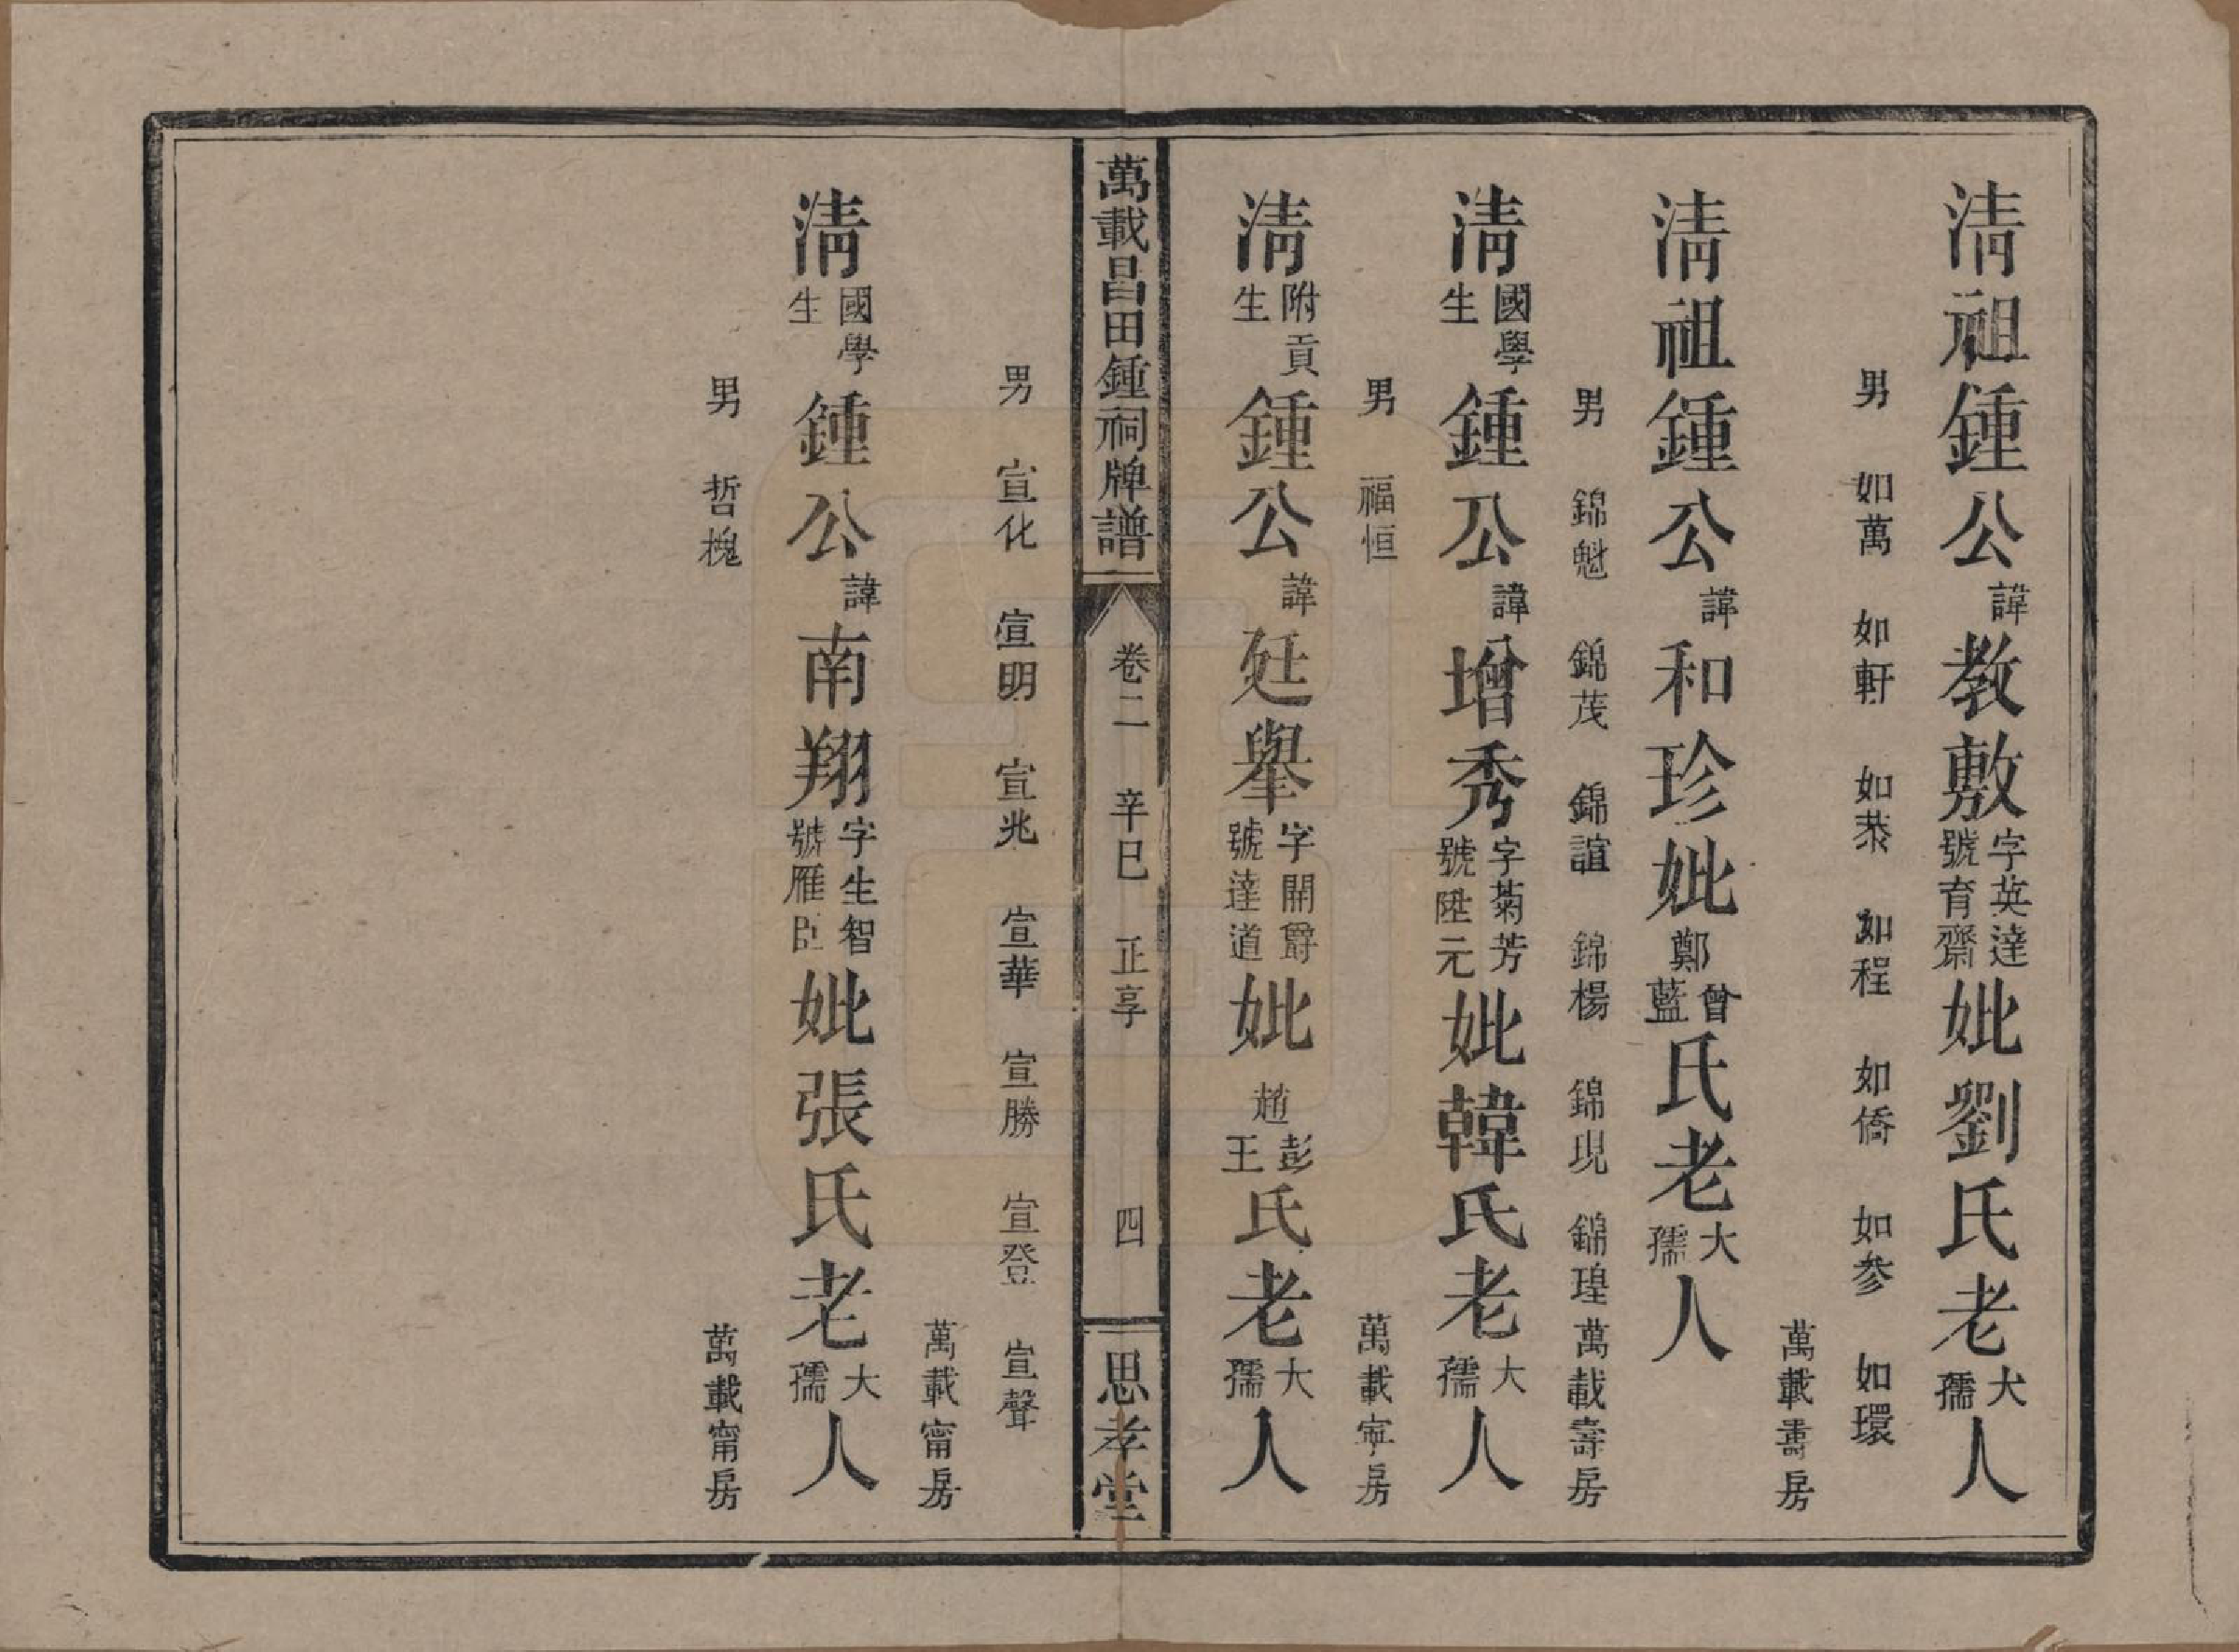 清祖鍾公諱教敷字英達號育齋妣劉氏老大孺人
男 如萬 如軒 如恭 如程 如僑 如參 如環
萬載壽房
清祖鍾公諱和珍妣鄭曾藍氏老大孺人
男 錦魁 錦茂 錦誼 錦楊 錦現 錦瑝 萬載壽房
清國學生鍾公諱增秀字菊芳號陞元妣韓氏老大孺人
男 福恒 萬載寧房
清附貢生鍾公諱廷舉字開爵號達道妣趙彭王氏老大孺人
萬載昌田鍾祠牌譜 卷二 辛巳 正享 四 思孝堂
男 宣化 宣明 宣兆 宣華 宣勝 宣登 宣聲
萬載甯房
清國學生鍾公諱南翔字生智號雁臣妣張氏老大孺人
男 哲槐 萬載甯房